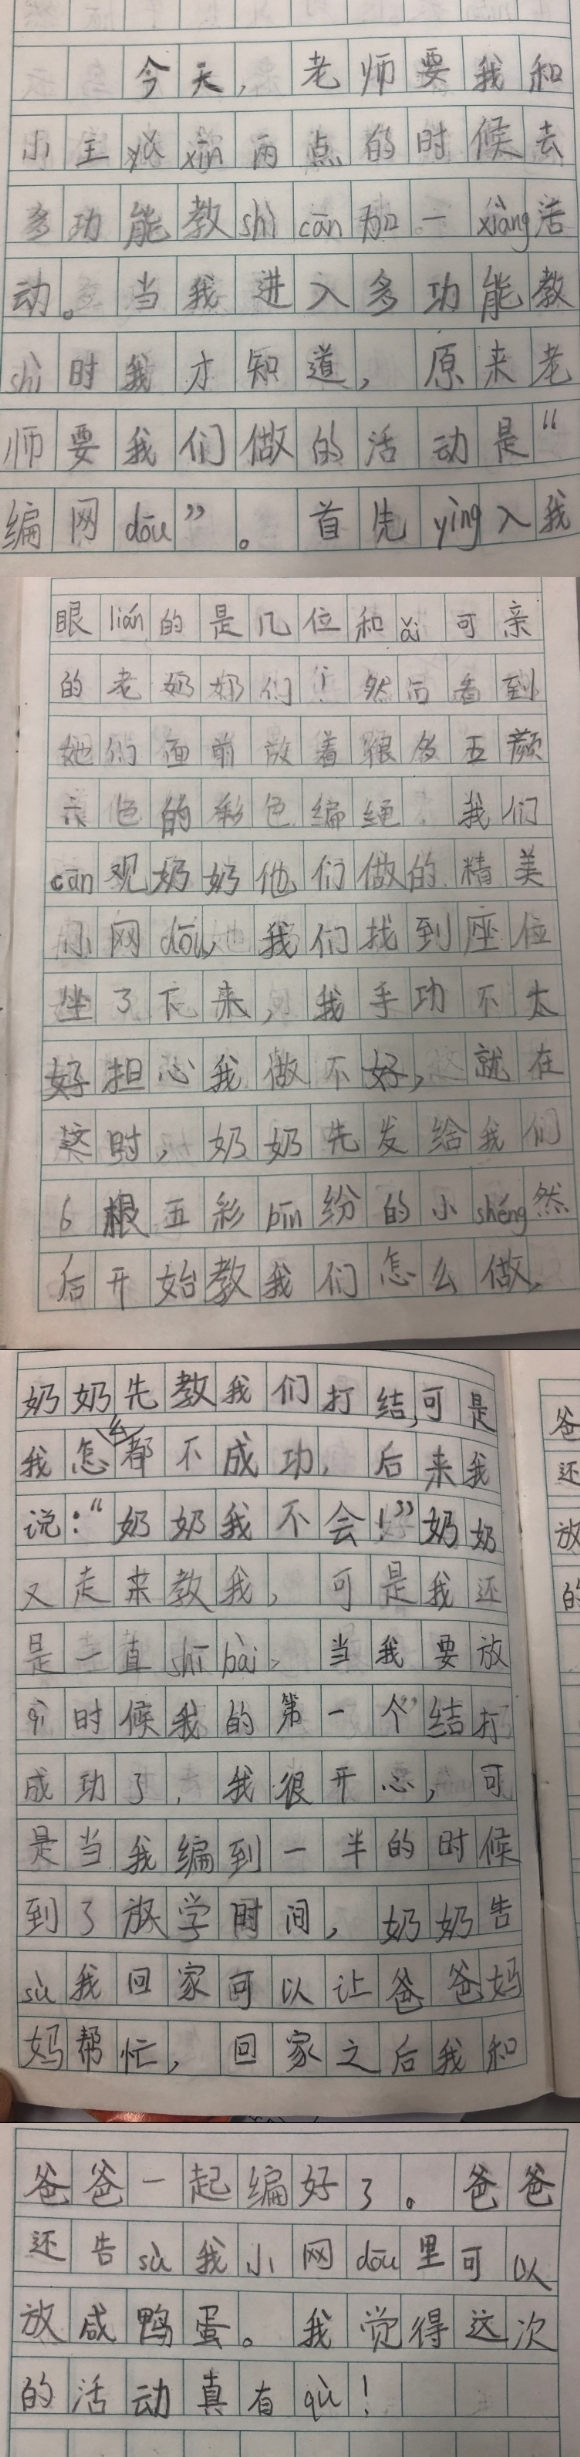 今天，老师要我和
小主yǔ xīn两点的时候去
多功能教shì cān加一xiàng活
动。当我进入多功能教
shì时我才知道，原来老
师要我们做的活动是“
编网dōu”。首先yìng入我
眼lián的是几位和ǎi可亲
的老奶奶们！然后看到
她们面前放着很多五颜
六色的彩色编绳，我们
cān观奶奶他们做的精美
小网dōu，我们找到座位
坐了下来，我手功不太
好担心我做不好，就在
这时，奶奶先发给我们
6根五彩bīn纷的小shéng然
后开始教我们怎么做，
奶奶先教我们打结，可是
我怎么都不成功，后来我
说：“奶奶我不会！”奶奶
又走来教我，可是我还
是一直shī bài，当我要放
qì时候我的第一个“结”打
成功了，我很开心，可
是当我编到一半的时候
到了放学时间，奶奶告
sù我回家可以让爸爸妈
妈帮忙，回家之后我和
爸爸一起编好了。爸爸
还告sù我小网dōu里可以
放咸鸭蛋。我觉得这次
的活动真有qù！